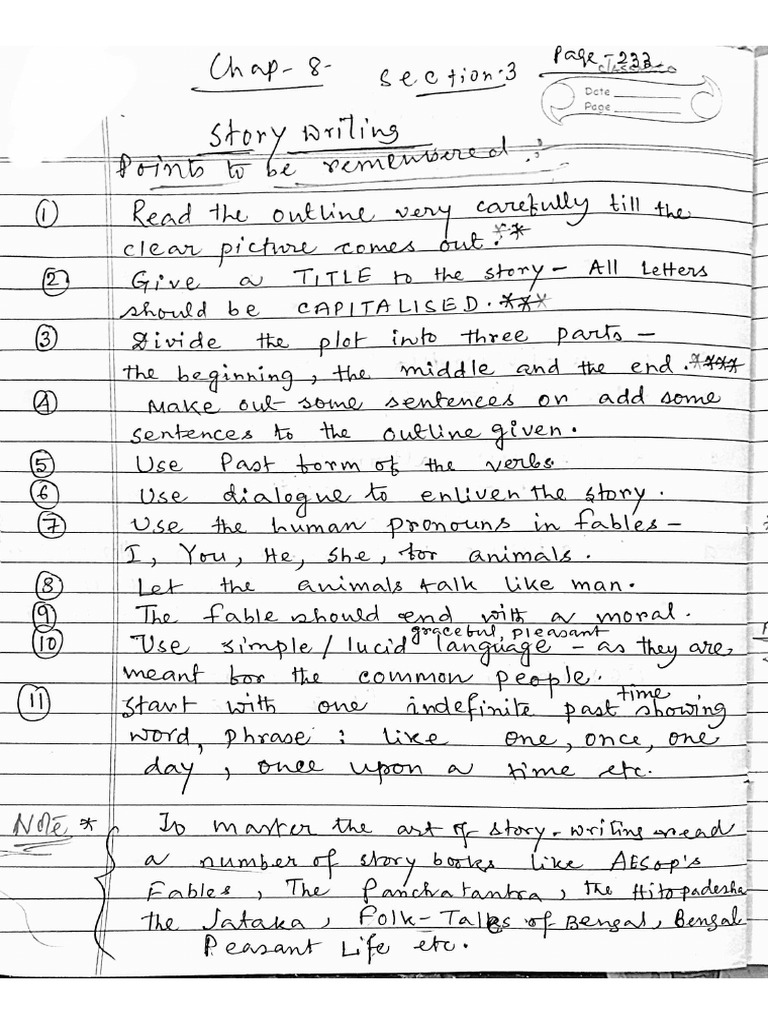 Chap-8- Section:3 Page-233
classmate
Date
Page
Story writing
Points to be remembered :
① Read the outline very carefully till the
clear picture comes out. **
② Give a TITLE to the story - All letters
should be CAPITALISED. ***
③ Divide the plot into three parts -
the beginning, the middle and the end. ****
④ Make out some sentences or add some
sentences to the outline given.
⑤ Use Past form of the verbs
⑥ Use dialogue to enliven the story.
⑦ Use the human pronouns in fables -
I, You, He, She, for animals.
⑧ Let the animals talk like man.
⑨ The fable should end with a moral.
graceful, pleasant
⑩ Use simple/lucid language - as they are
meant for the common people.
time
⑪ Start with one indefinite past showing
word, phrase : like one, once, one
day, once upon a time etc.
Note * To master the art of story-writing read
a number of story books like AESop's
Fables, The Panchatantra, the Hitopadesha
the Jataka, Folk-Tales of Bengal, Bengal
Peasant Life etc.